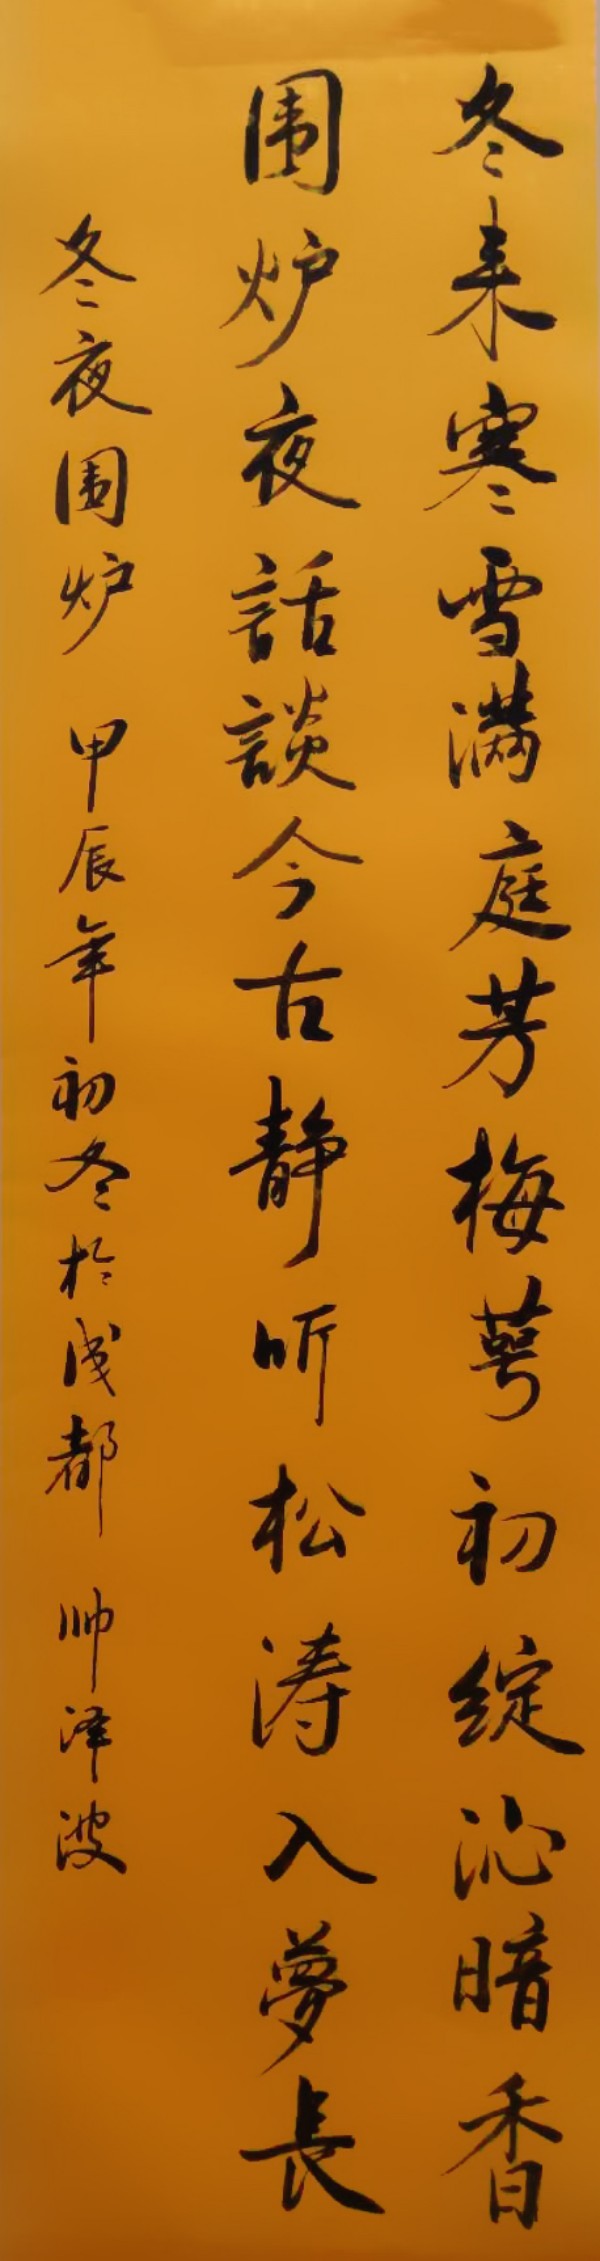 冬来寒雪满庭芳梅萼初綻沁暗香
围炉夜話談今古静听松涛入夢長
冬夜围炉 甲辰年初冬於成都 帅泽波